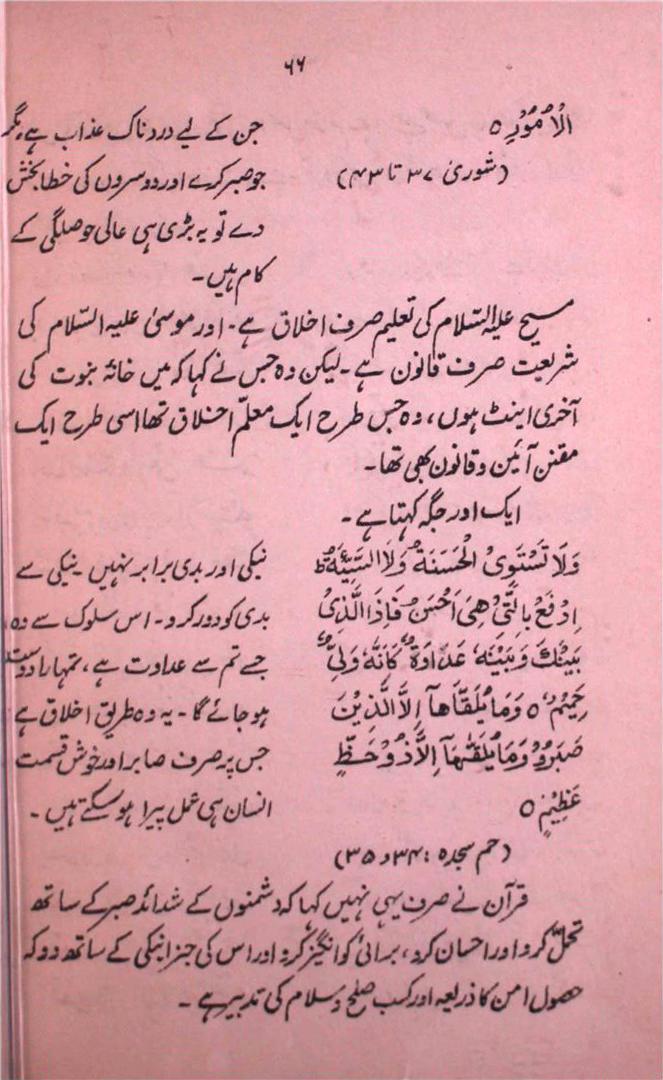 ۶۶
الْاُمُوْرِ ۵
(شوریٰ ۳۷ تا ۴۳)
جن کے لیے دردناک عذاب ہے، مگر
جو صبر کرے اور دوسروں کی خطا بخش
دے تو یہ بڑی ہی عالی حوصلگی کے
کام ہیں۔
مسیح علیہ السّلام کی تعلیم صرف اخلاق ہے۔ اور موسیٰ علیہ السّلام کی
شریعت صرف قانون ہے۔ لیکن وہ جس نے کہا کہ میں خانۂ نبوت کی
آخری اینٹ ہوں، وہ جس طرح ایک معلّم اخلاق تھا اسی طرح ایک
مقنن آئین و قانون بھی تھا۔
ایک اور جگہ کہتا ہے۔
وَلَا تَسْتَوِی الْحَسَنَةُ وَلَا السَّیِّئَةُ ط
اِدْفَعْ بِالَّتِیْ هِیَ اَحْسَنُ فَاِذَا الَّذِیْ
بَیْنَكَ وَبَیْنَهٗ عَدَاوَةٌ كَاَنَّهٗ وَلِیٌّ
حَمِیْمٌ ۵ وَمَا یُلَقَّاهَآ اِلَّا الَّذِیْنَ
صَبَرُوْ وَمَا یُلَقّٰهَآ اِلَّا ذُوْ حَظٍّ
عَظِیْمٍ ۵
(حم سجدہ : ۳۴ و ۳۵)
نیکی اور بدی برابر نہیں۔ نیکی سے
بدی کو دور کرو۔ اس سلوک سے وہ،
جسے تم سے عداوت ہے، تمہارا دوست
ہو جائے گا۔ یہ وہ طریق اخلاق ہے
جس پر صرف صابر اور خوش قسمت
انسان ہی عمل پیرا ہو سکتے ہیں۔
قرآن نے صرف یہی نہیں کہا کہ دشمنوں کے شدائد صبر کے ساتھ
تحمّل کرو اور احسان کرو، برائی کو انگیز کرو اور اس کی جزا نیکی کے ساتھ دو کہ
حصول امن کا ذریعہ اور کسب صلح و سلام کی تدبیر ہے۔